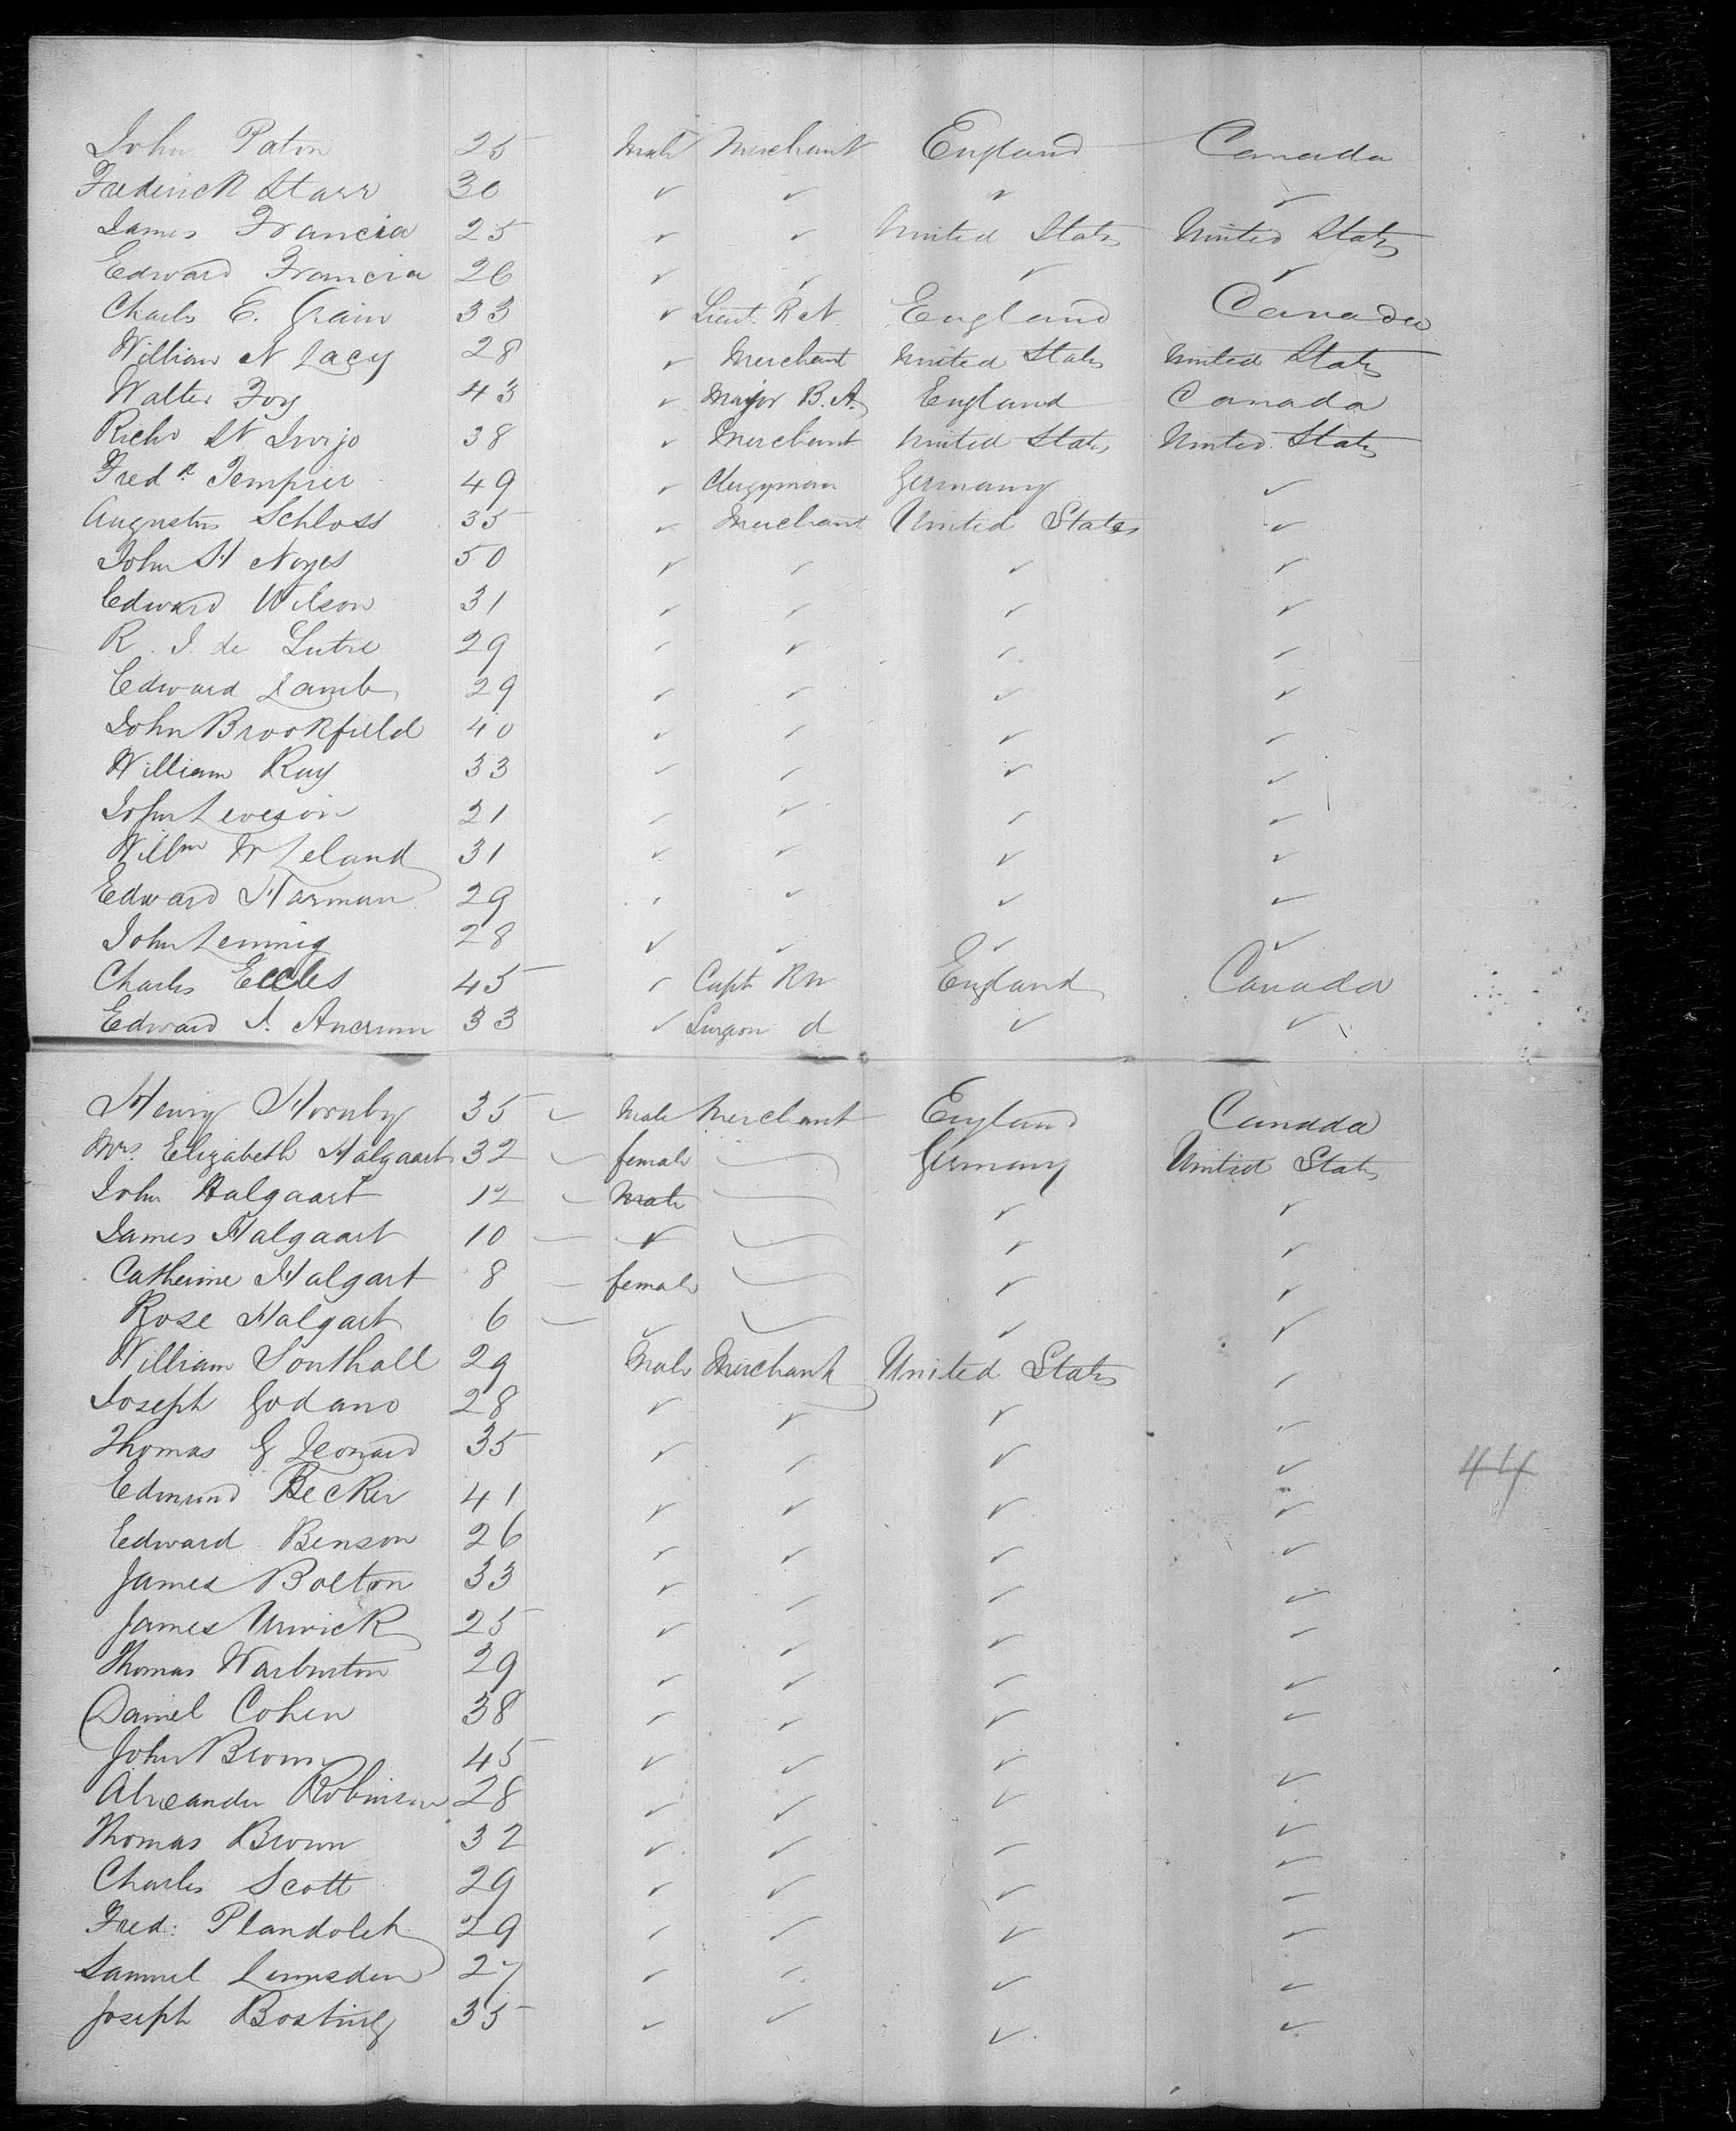 John Paton 25 Male Merchant England Canada
Frederick Starr 30 ✓ ✓ ✓ ✓
James Francia 25 ✓ ✓ United States United States
Edward Francia 26 ✓ ✓ ✓ ✓
Charles E. Grain 33 ✓ Lieut. R N. England Canada
William N Lacy 28 ✓ Merchant United States United States
Walter Foy 43 ✓ Major B. A. England Canada
Richd St 38 ✓ Merchant United States United States
Fredk. Tempier 49 ✓ Clergyman Germany ✓
Augustus Schloss 35 ✓ Merchant United States ✓
John H Noyes 50 ✓ ✓ ✓ ✓
Edward Wilson 31 ✓ ✓ ✓ ✓
R. J. de Lutre 29 ✓ ✓ ✓ ✓
Edward Lamb 29 ✓ ✓ ✓ ✓
John Brookfield 40 ✓ ✓ ✓ ✓
William Ray 33 ✓ ✓ ✓ ✓
John Leveson 21 ✓ ✓ ✓ ✓
Willm W Leland 31 ✓ ✓ ✓ ✓
Edward Harman 29 ✓ ✓ ✓ ✓
John Lennig 28 ✓ ✓ ✓ ✓
Charles Eccles 45 ✓ Capt. RN England Canada
Edward A. Ancrum 33 ✓ Surgeon d ✓ ✓
Henry Hornby 35 Male Merchant England Canada
Mrs. Elizabeth Halgaart 32 female Germany United States
John Halgaart 12 Male ✓ ✓
James Halgaart 10 ✓ ✓ ✓
Catherine Halgart 8 female ✓ ✓
Rose Halgart 6 ✓ ✓ ✓
William Southall 29 Male Merchant United States ✓
Joseph Godano 28 ✓ ✓ ✓ ✓
Thomas G Leonard 35 ✓ ✓ ✓ ✓
44
Edmund Becker 41 ✓ ✓ ✓ ✓
Edward Benson 26 ✓ ✓ ✓ ✓
James Bolton 33 ✓ ✓ ✓ ✓
James Unwick 25 ✓ ✓ ✓ ✓
Thomas Warburton 29 ✓ ✓ ✓ ✓
Daniel Cohen 38 ✓ ✓ ✓ ✓
John Brown 45 ✓ ✓ ✓ ✓
Alexander Robinson 28 ✓ ✓ ✓ ✓
Thomas Brown 32 ✓ ✓ ✓ ✓
Charles Scott 29 ✓ ✓ ✓ ✓
Fred: Plandolit 29 ✓ ✓ ✓ ✓
Samuel Lumsden 27 ✓ ✓ ✓ ✓
Joseph Bosting 35 ✓ ✓ ✓ ✓